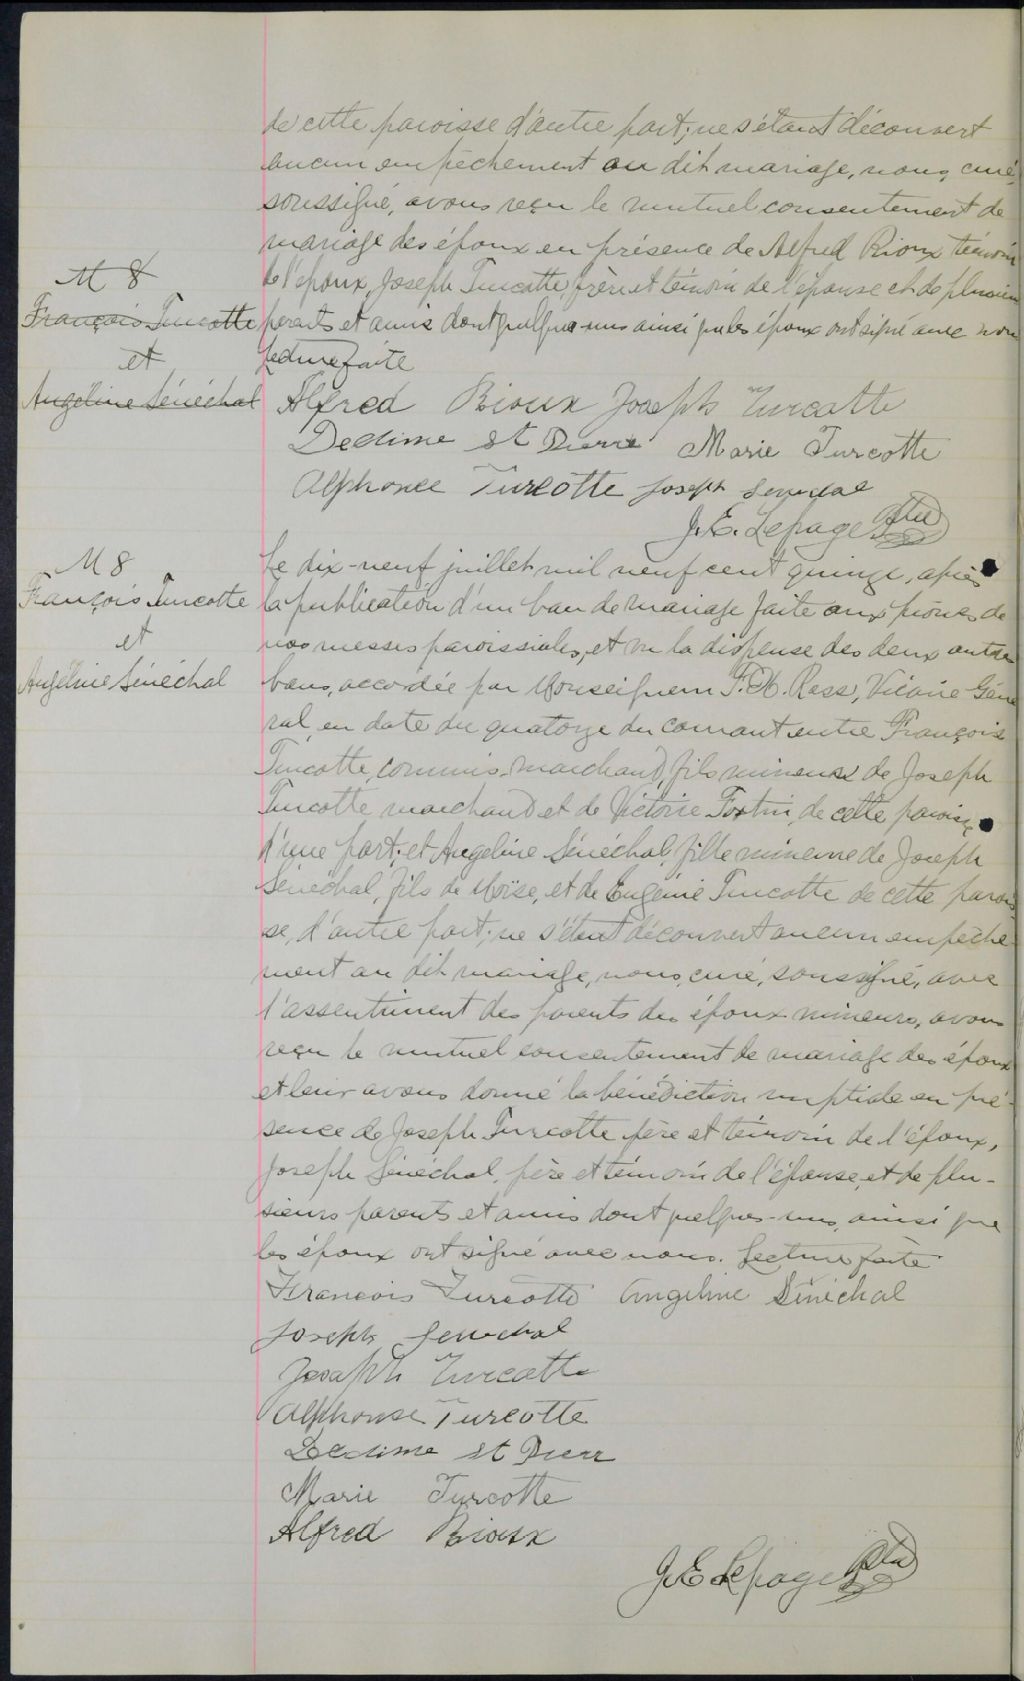 de cette paroisse d'autre part; ne s'étant découvert
aucun empêchement au dit mariage, nous, curé,
soussigné, avons reçu le mutuel consentement de
mariage des époux en présence de Alfred Rioux témoin
de l'époux, Joseph Turcotte, frère et témoin de l'épouse et de plusieurs
M 8
François Turcotte
et
Angéline Sénéchal
parents et amis dont quelques-uns ainsi que les époux ont signé avec nous
Lecture faite
Alfred Rioux Joseph Turcotte
Dedime St Pierre Marie Turcotte
Alphonse Turcotte Joseph Senechal
J. E. Lepage Ptre
M 8
François Turcotte
et
Angéline Sénéchal
Le dix-neuf juillet mil neuf cent quinze, après
la publication d'un ban de mariage faite aux prônes de
nos messes paroissiales, et vu la dispense des deux autres
bans, accordée par Monseigneur F. X. Ross, Vicaire Géné
ral, en date du quatorze du courant entre François
Turcotte, commis-marchand, fils mineur de Joseph
Turcotte marchand et de Victoire Fortin, de cette paroisse
d'une part; et Angeline Sénéchal, fille mineure de Joseph
Sénéchal, fils de Moïse, et de Eugénie Turcotte de cette parois
se, d'autre part; ne s'étant découvert aucun empêche
ment au dit mariage, nous, curé, soussigné, avec
l'assentiment des parents des époux mineurs, avons
reçu le mutuel consentement de mariage des époux
et leur avons donné la bénédiction nuptiale en pré-
sence de Joseph Turcotte père et témoin de l'époux,
Joseph Sénéchal, père et témoin de l'épouse, et de plu-
sieurs parents et amis dont quelques-uns, ainsi que
les époux ont signé avec nous. Lecture faite
Francois Turcotte Angeline Sénéchal
Joseph Senechal
Joseph Turcotte
Alphonse Turcotte
Dedime St Pierr
Marie Turcotte
Alfred Rioux
J. E Lepage Ptre